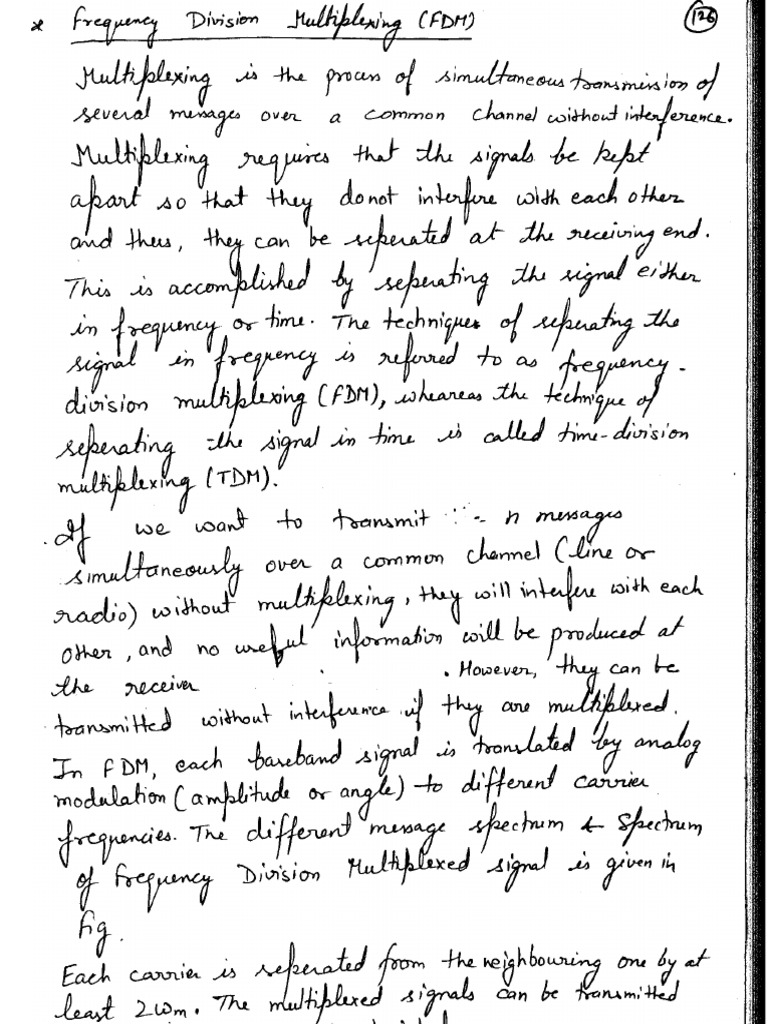 * Frequency Division Multiplexing (FDM) 126
Multiplexing is the process of simultaneous transmission of
several messages over a common channel without interference.
Multiplexing requires that the signals be kept
apart so that they donot interfere with each other
and thus, they can be seperated at the receiving end.
This is accomplished by seperating the signal either
in frequency or time. The technique of seperating the
signal in frequency is referred to as frequency-
division multiplexing (FDM), wheareas the technique of
seperating the signal in time is called time-division
multiplexing (TDM).
If we want to transmit n messages
simultaneously over a common channel (line or
radio) without multiplexing, they will interfere with each
other, and no useful information will be produced at
the receiver . However, they can be
transmitted without interference if they are multiplexed.
In FDM, each baseband signal is translated by analog
modulation (amplitude or angle) to different carrier
frequencies. The different message spectrum & Spectrum
of Frequency Division Multiplexed signal is given in
fig.
Each carrier is seperated from the neighbouring one by at
least 2wm. The multiplexed signals can be transmitted